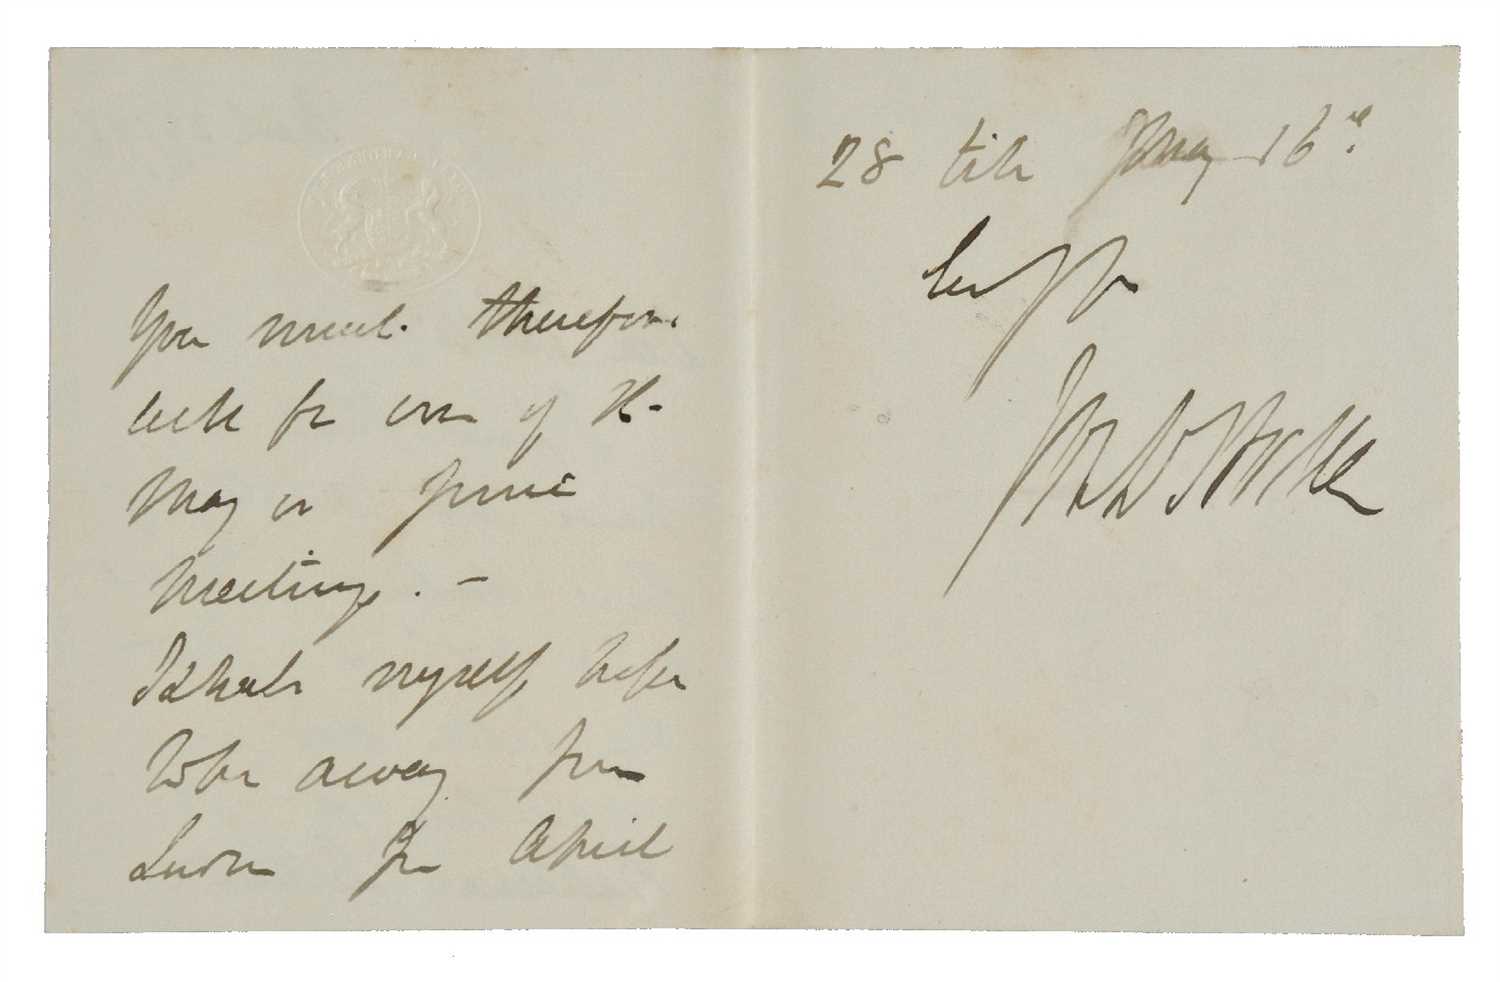 You must therefore
look for one of the
May or June
meetings. –
I shall myself
away from
London from April
28 till May 16th.